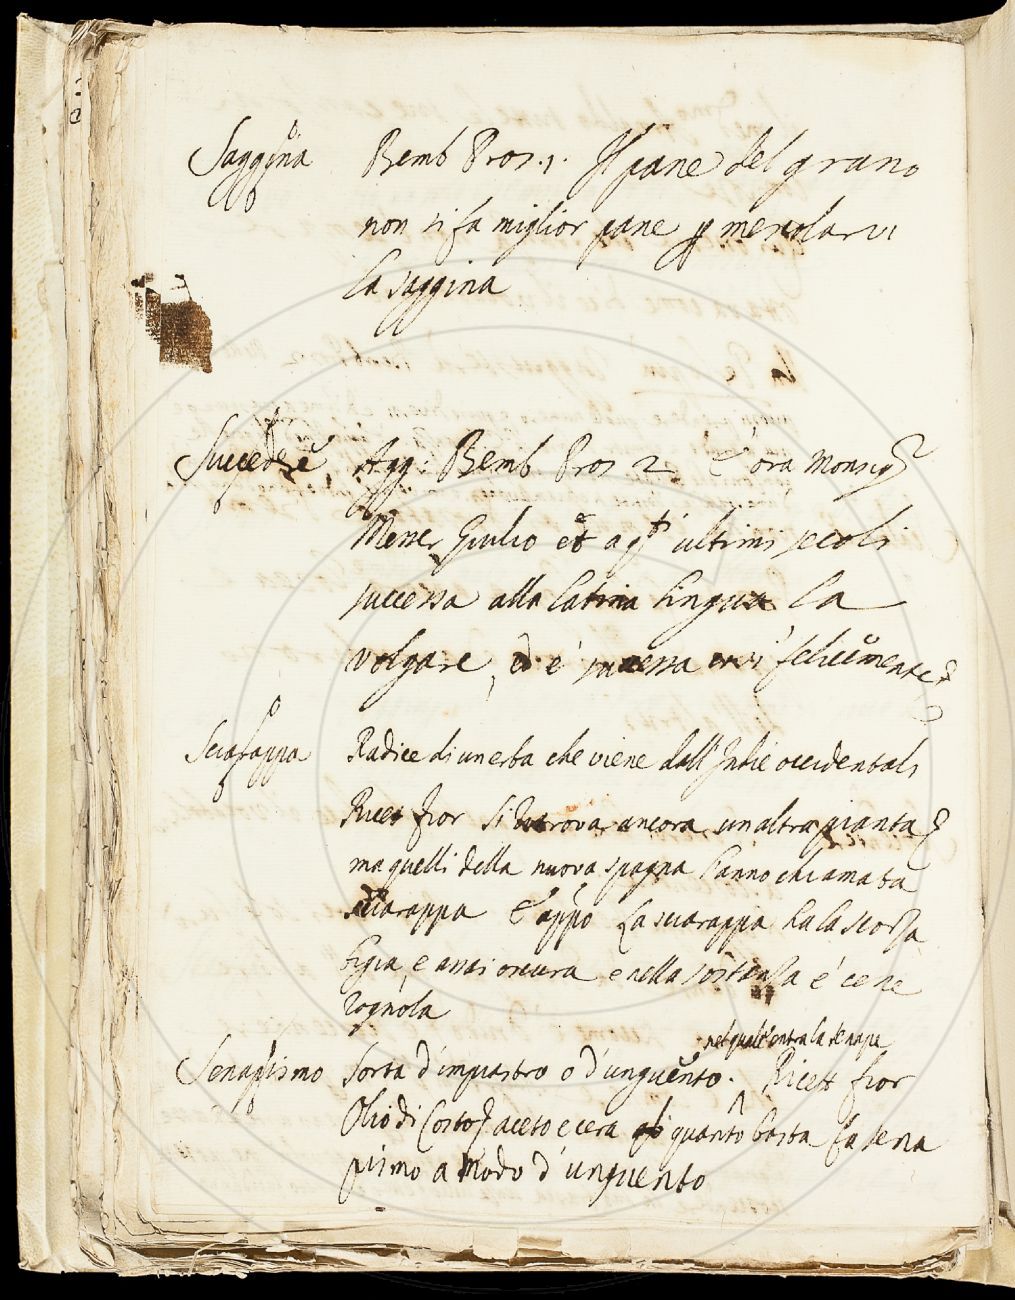 Saggina Bemb Pros. 1. Il pane del grano
non si fa miglior pane p mescolarvi
la saggina
Succedere Agg: Bemb. Pros 2 è ora Monsig
Messer Giulio et a qsti ultimi secoli
successa alla latina lingua la
volgare, et è successa così felicemente
Sciarappa Radice di un erba che viene dall'Indie occidentali
Ricet fior Si trova ancora un altra pianta
ma quelli della nuova spagna hanno chiamata
sciarappa E appo La sciarappa ha la scorza
bigia, e assai oscura e nella sostanza é cene
rognola
nel quale entra la senapa
Senapismo Sorta d'impiastro o d'unguento. Ricett fior
Olio di Costo aceto e cera quanto basta fa sena
pismo a modo d'unguento